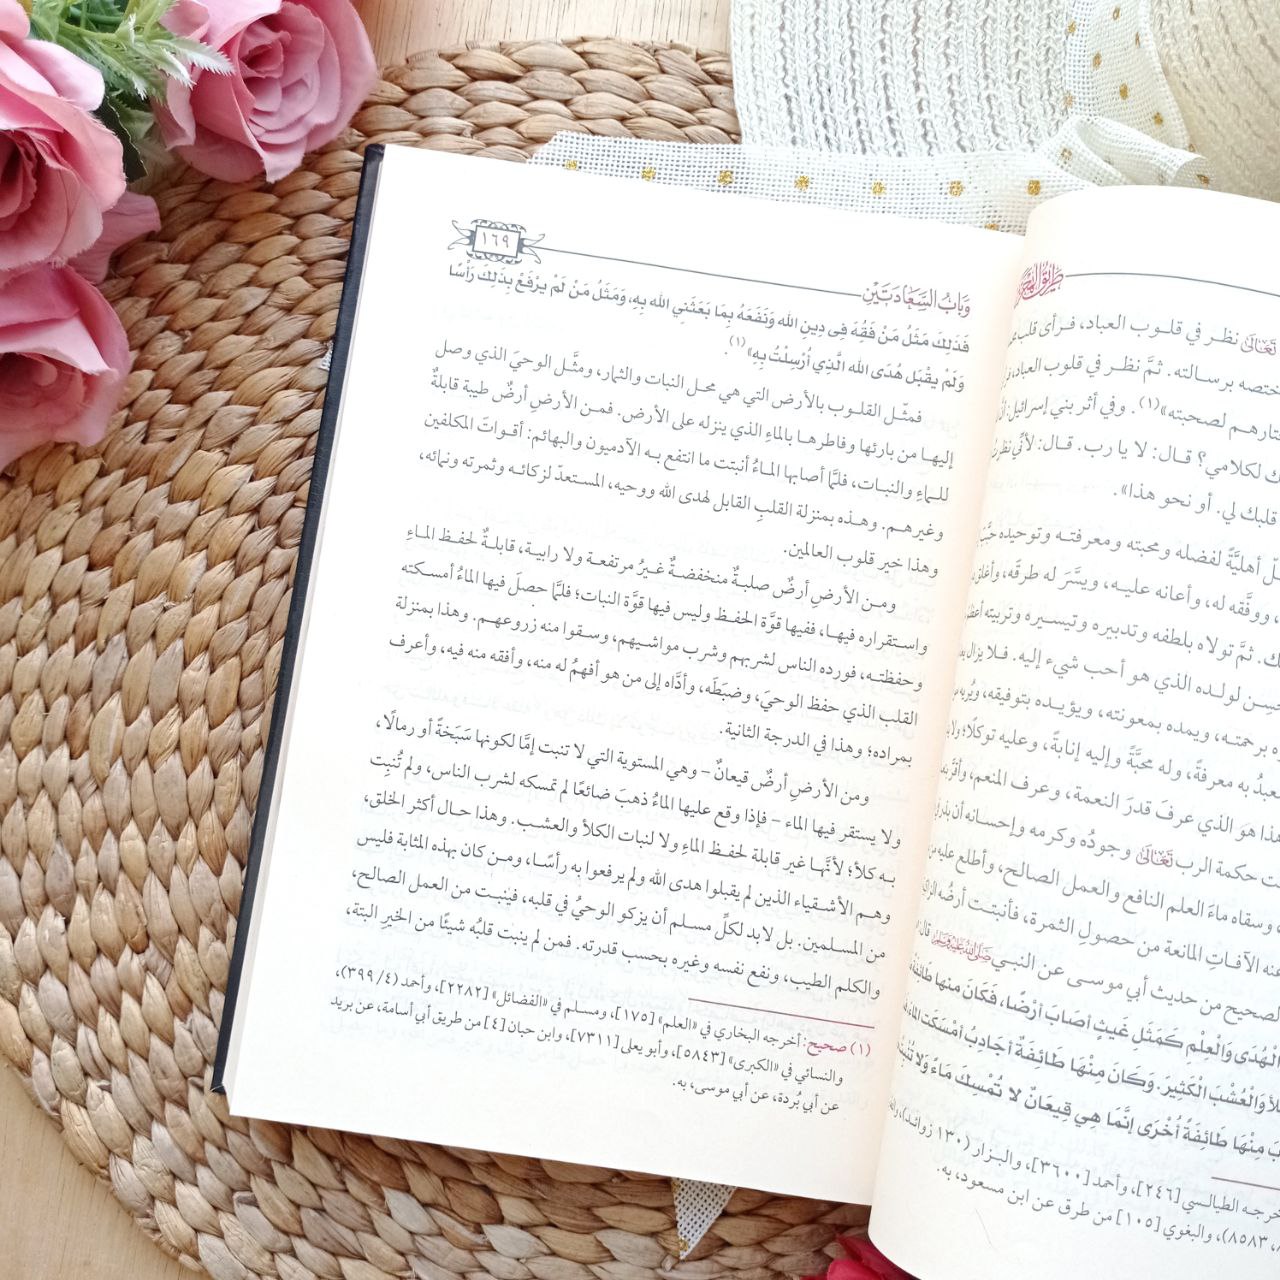 طريق الهجرتين
تعالى نظر في قلوب العباد، فرأى قلب
ختصه برسالته. ثمَّ نظر في قلوب العباد،
تارهم لصحبته»(١). وفي أثر بني إسرائيل:
ك لكلامي؟ قال: لا يا رب. قال: لأنِّي
قلبك لي. أو نحو هذا».
أهليَّةً لفضله ومحبته ومعرفته وتوحيده
ووفَّقه له، وأعانه عليه، ويسَّرَ له طرقَه،
ك. ثمَّ تولاه بلطفه وتدبيره وتيسيره وتربيته
لولده الذي هو أحب شيء إليه. فلا يزال
ه برحمته، ويمده بمعونته، ويؤيده بتوفيقه،
به معرفةً، وله محبَّةً وإليه إنابةً، وعليه توكلًا؛
هوَ الذي عرفَ قدرَ النعمة، وعرف المنعم،
ت حكمة الرب تعالى وجودُه وكرمه وإحسانه أن
وسقاه ماءَ العلم النافع والعمل الصالح، وأطلع عليه
عنه الآفاتِ المانعة من حصولِ الثمرة، فأنبتت أرضُه
لصحيح من حديث أبي موسى عن النبي صلى الله عليه وسلم قال:
الْهُدَى وَالْعِلْمِ كَمَثَلِ غَيْثٍ أصَابَ أرْضًا، فَكَانَ منها طَائِفَةٌ
وَالْعُشْبَ الْكَثِيرَ. وَكَانَ مِنْهَا طَائِفَةٌ أجَادِبُ أمْسَكَت المَاءَ
بَ مِنْهَا طَائِفَةً أُخْرَى إنَّمَا هِي قِيعَانٌ لا تُمْسِكُ مَاءً وَلا
الطيالسي [٢٤٦]، وأحمد [٣٦٠٠]، والبزار (١٣٠ زوائد)،
٨٥٨٣)، والبغوي [١٠٥] من طرق عن ابن مسعود، به.
وَبَابُ السَّعَادَتَيْنِ
١٦٩
فَذَلِكَ مَثَلُ مَنْ فَقُهَ فِى دِينِ الله وَنَفَعَهُ بِمَا بَعَثَنِي الله بِهِ، وَمَثَلُ مَنْ لَمْ يرْفَعْ بِذَلِكَ رَأْسًا
وَلَمْ يقْبَل هُدَى الله الَّذِي أُرْسِلْتُ بِهِ»(١).
فمثّل القلوب بالأرض التي هي محل النبات والثمار، ومثَّل الوحيَ الذي وصل
إليها من بارئها وفاطرها بالماءِ الذي ينزله على الأرض. فمن الأرضِ أرضٌ طيبة قابلةٌ
للماءِ والنبات، فلمَّا أصابها الماءُ أنبتت ما انتفع به الآدميون والبهائم: أقواتَ المكلفين
وغيرهم. وهذه بمنزلة القلبِ القابل لهدى الله ووحيه، المستعدّ لزكائه وثمرته ونمائه،
وهذا خير قلوب العالمين.
ومن الأرضِ أرضٌ صلبةٌ منخفضةٌ غيرُ مرتفعة ولا رابية، قابلةٌ لحفظ الماءِ
واستقراره فيها، ففيها قوَّة الحفظ وليس فيها قوَّة النبات؛ فلمَّا حصلَ فيها الماءُ أمسكته
وحفظته، فورده الناس لشربهم وشرب مواشيهم، وسقوا منه زروعهم. وهذا بمنزلة
القلب الذي حفظ الوحيَ، وضبَطَه، وأدَّاه إلى من هو أفهمُ له منه، وأفقه منه فيه، وأعرف
بمراده؛ وهذا في الدرجة الثانية.
ومن الأرضِ أرضٌ قيعانٌ – وهي المستوية التي لا تنبت إمَّا لكونها سَبَخةً أو رمالًا،
ولا يستقر فيها الماء – فإذا وقع عليها الماءُ ذهبَ ضائعًا لم تمسكه لشرب الناس، ولم تُنبِت
به كلأ؛ لأنَّها غير قابلة لحفظ الماءِ ولا لنبات الكلأ والعشب. وهذا حال أكثر الخلق،
وهم الأشقياء الذين لم يقبلوا هدى الله ولم يرفعوا به رأسًا، ومن كان بهذه المثابة فليس
من المسلمين. بل لابد لكلِّ مسلم أن يزكو الوحيُ في قلبه، فينبت من العمل الصالح،
والكلم الطيب، ونفع نفسه وغيره بحسب قدرته. فمن لم ينبت قلبُه شيئًا من الخيرِ البتة،
(١) صحيح: أخرجه البخاري في «العلم» [١٧٥]، ومسلم في «الفضائل» [٢٢٨٢]، وأحمد (٤/ ٣٩٩)،
والنسائي في «الكبرى» [٥٨٤٣]، وأبو يعلى [٧٣١١]، وابن حبان [٤] من طريق أبي أسامة، عن بريد
عن أبي بُردة، عن أبي موسى، به.